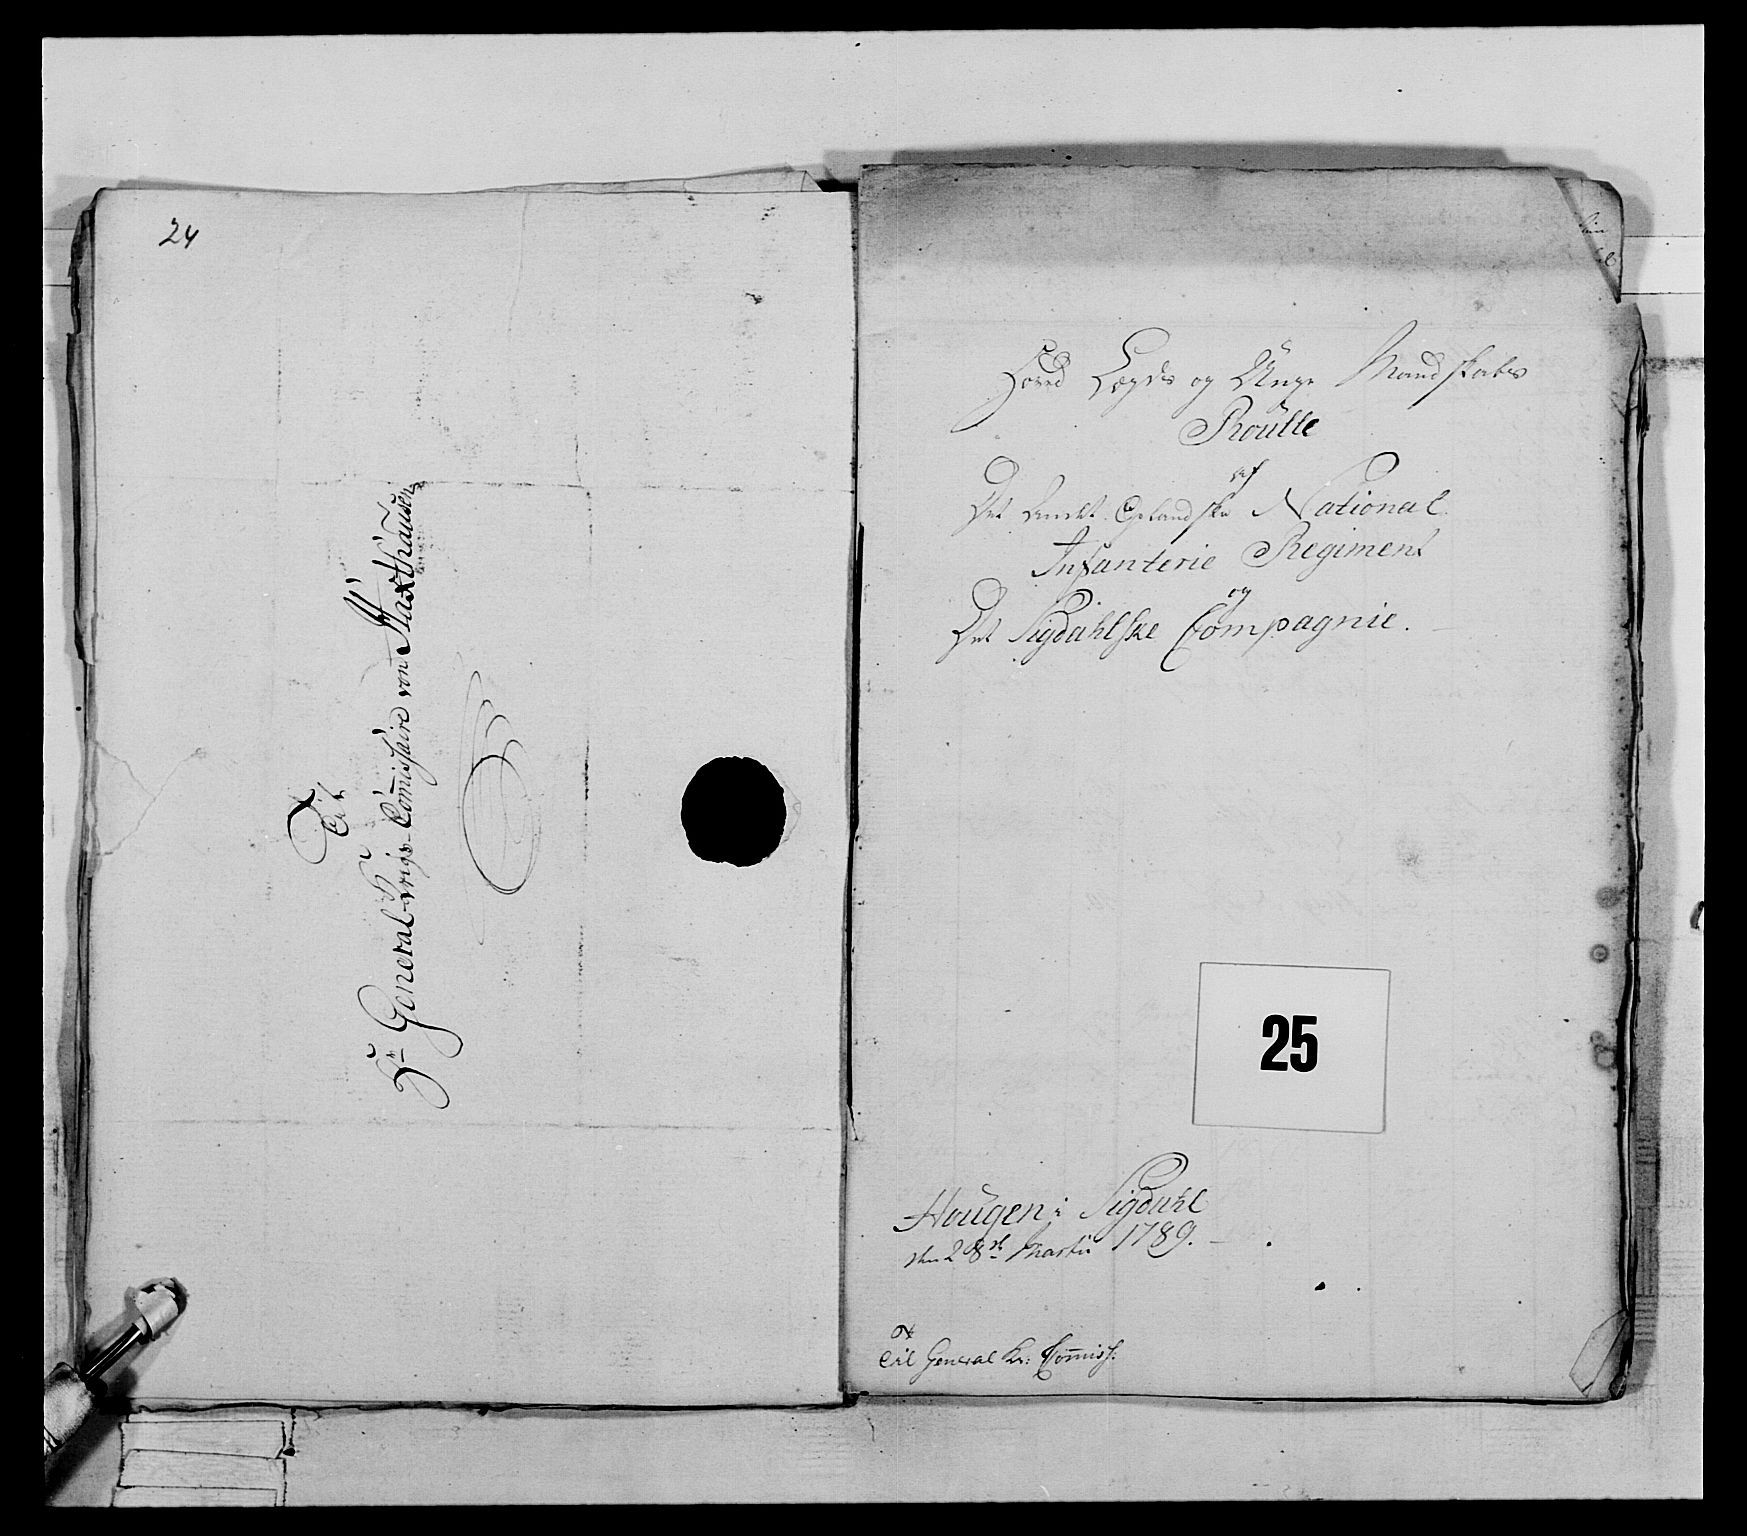 24
Til
Hr General-Krigs-Com̄issaire von Haxthausen
Hoved Lægds og Unge Mandskabs
Roulle
af
Det Andet Oplandske National
Infanterie Regiment
og
Det Sigdahlske Compagnie.
25
Hougen i Sigdahl
den 28de Martii 1789.
Til General Kr: Com̄iss: